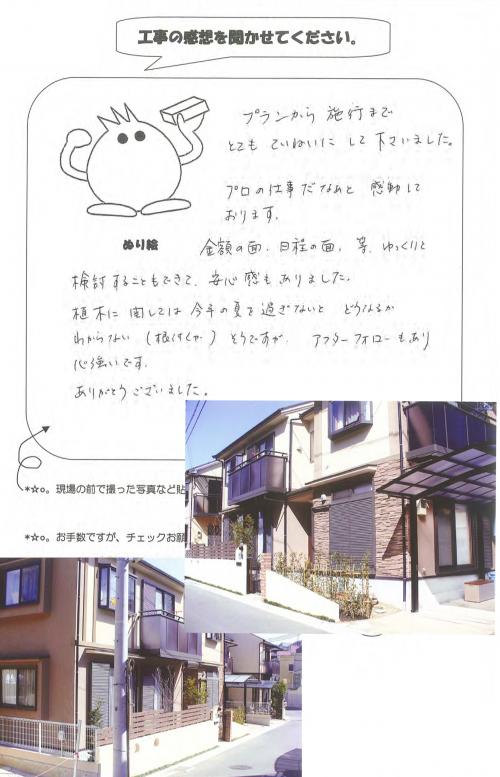 工事の感想を聞かせてください。
プランから 施行まで
とても ていねいに して 下さいました。
プロの仕事だなあと 感動して
おります。
ぬり絵
金額の面、日程の面、等、ゆっくりと
検討することもできて、安心感もありました。
植木に関しては今年の夏を過ぎないと どうなるか
わからない (根付くか) そうですが、アフターフォローもあり
心強いです。
ありがとうございました。
*☆。現場の前で撮った写真など貼
*☆。お手数ですが、チェックお願